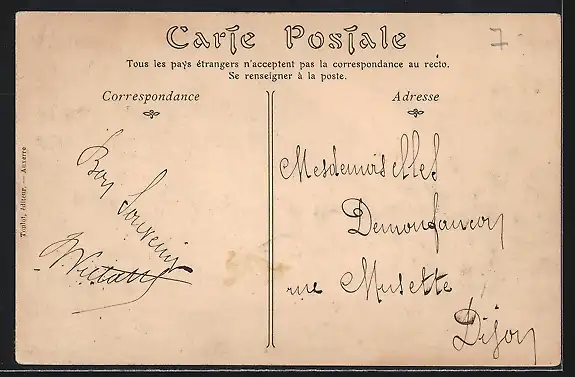 Carte Postale
7
Tous les pays étrangers n'acceptent pas la correspondance au recto.
Se renseigner à la poste.
Correspondance
Bon Souvenir
Adresse
Mesdemoiselles
Demonfaucon
rue Musette
Dijon
Toulot, éditeur. — Auxerre